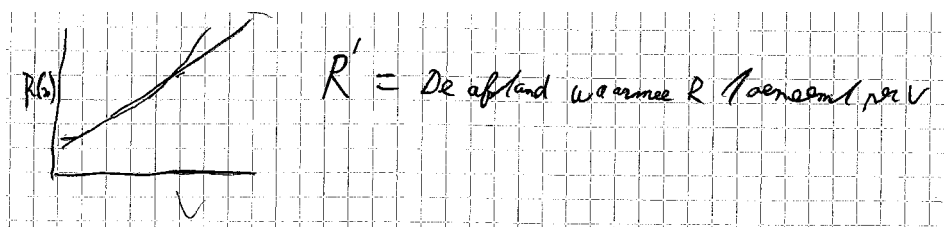 R(v)
V
R' = De afstand waarmee R toeneemt per V